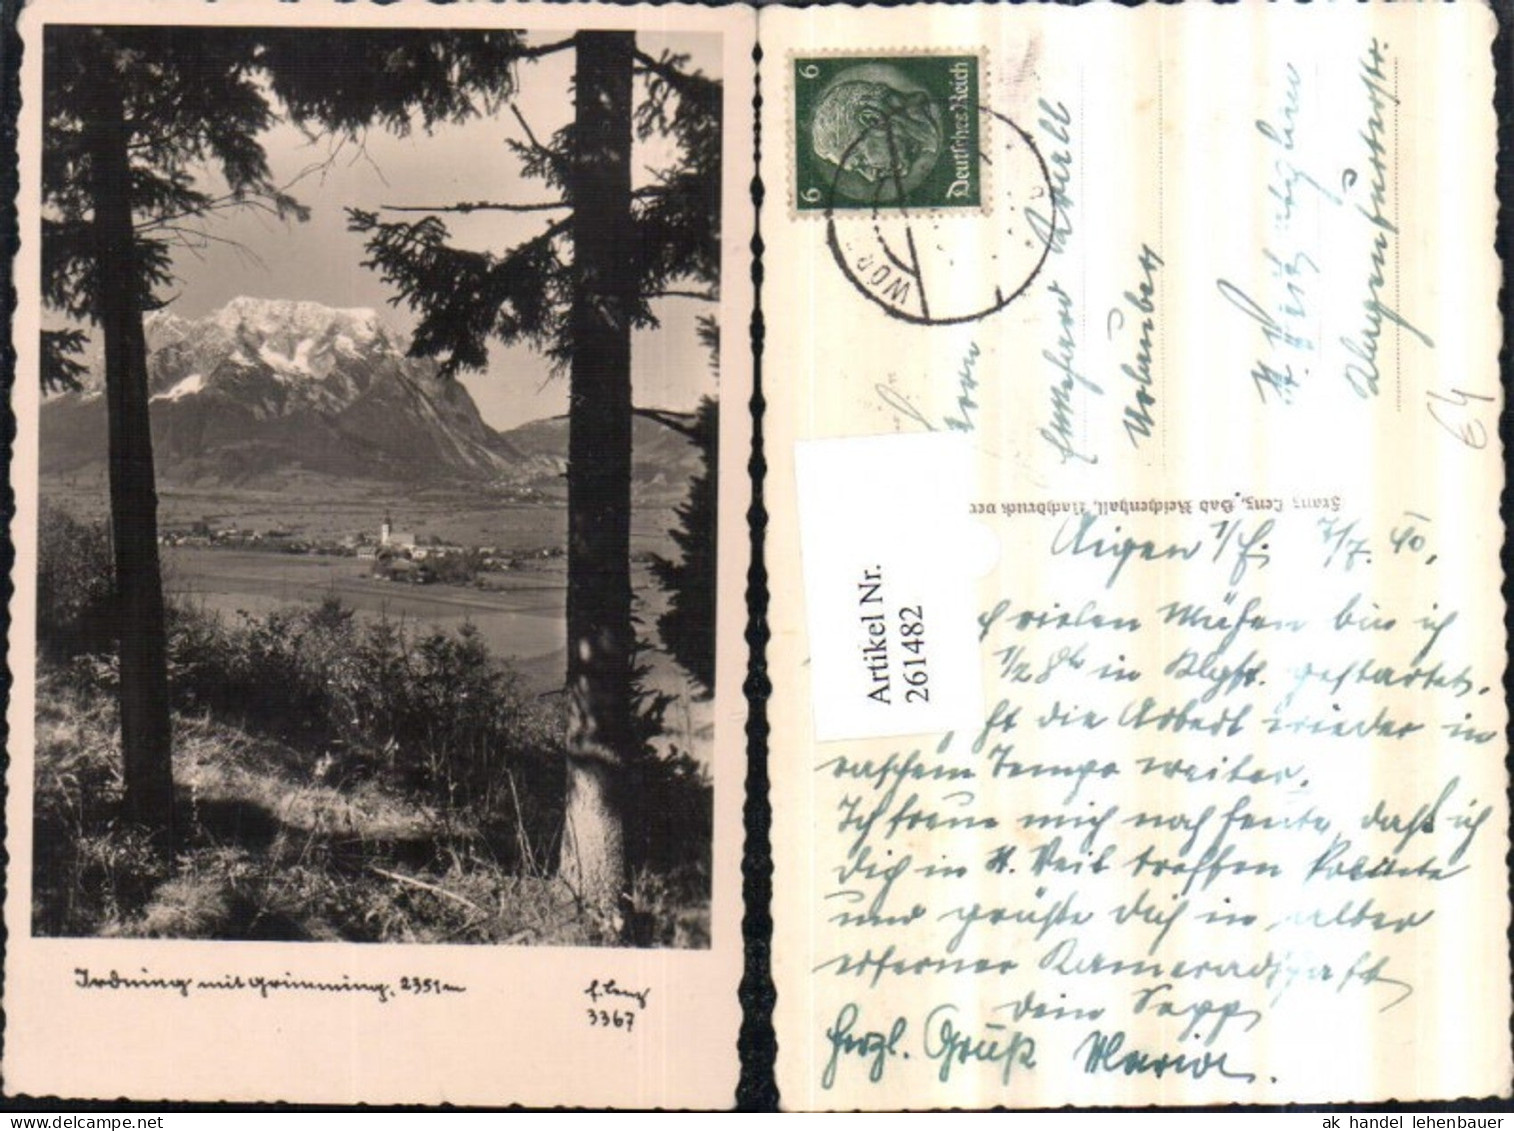 Irdning mit Grimming, 2351 m
F. Lenz
3367
6 6
Deutsches Reich
Herrn
St. Veit
Klagenfurterstr.
E4
Franz Lenz, Bad Reichenhall, Nachdruck ver
Artikel Nr.
261482
Aigen 7/7. 40.
vielen Mühen bin ich
1/2 8 in Klgft. gestartet.
ht die Arbeit wieder in
raschem Tempo weiter.
Ich freue mich noch heute, daß ich
Dich in St. Veit treffen konnte
und grüße Dich in alter
Kameradschaft
Dein Sepp
Herzl. Gruß Maria.
ak handel lehenbauer